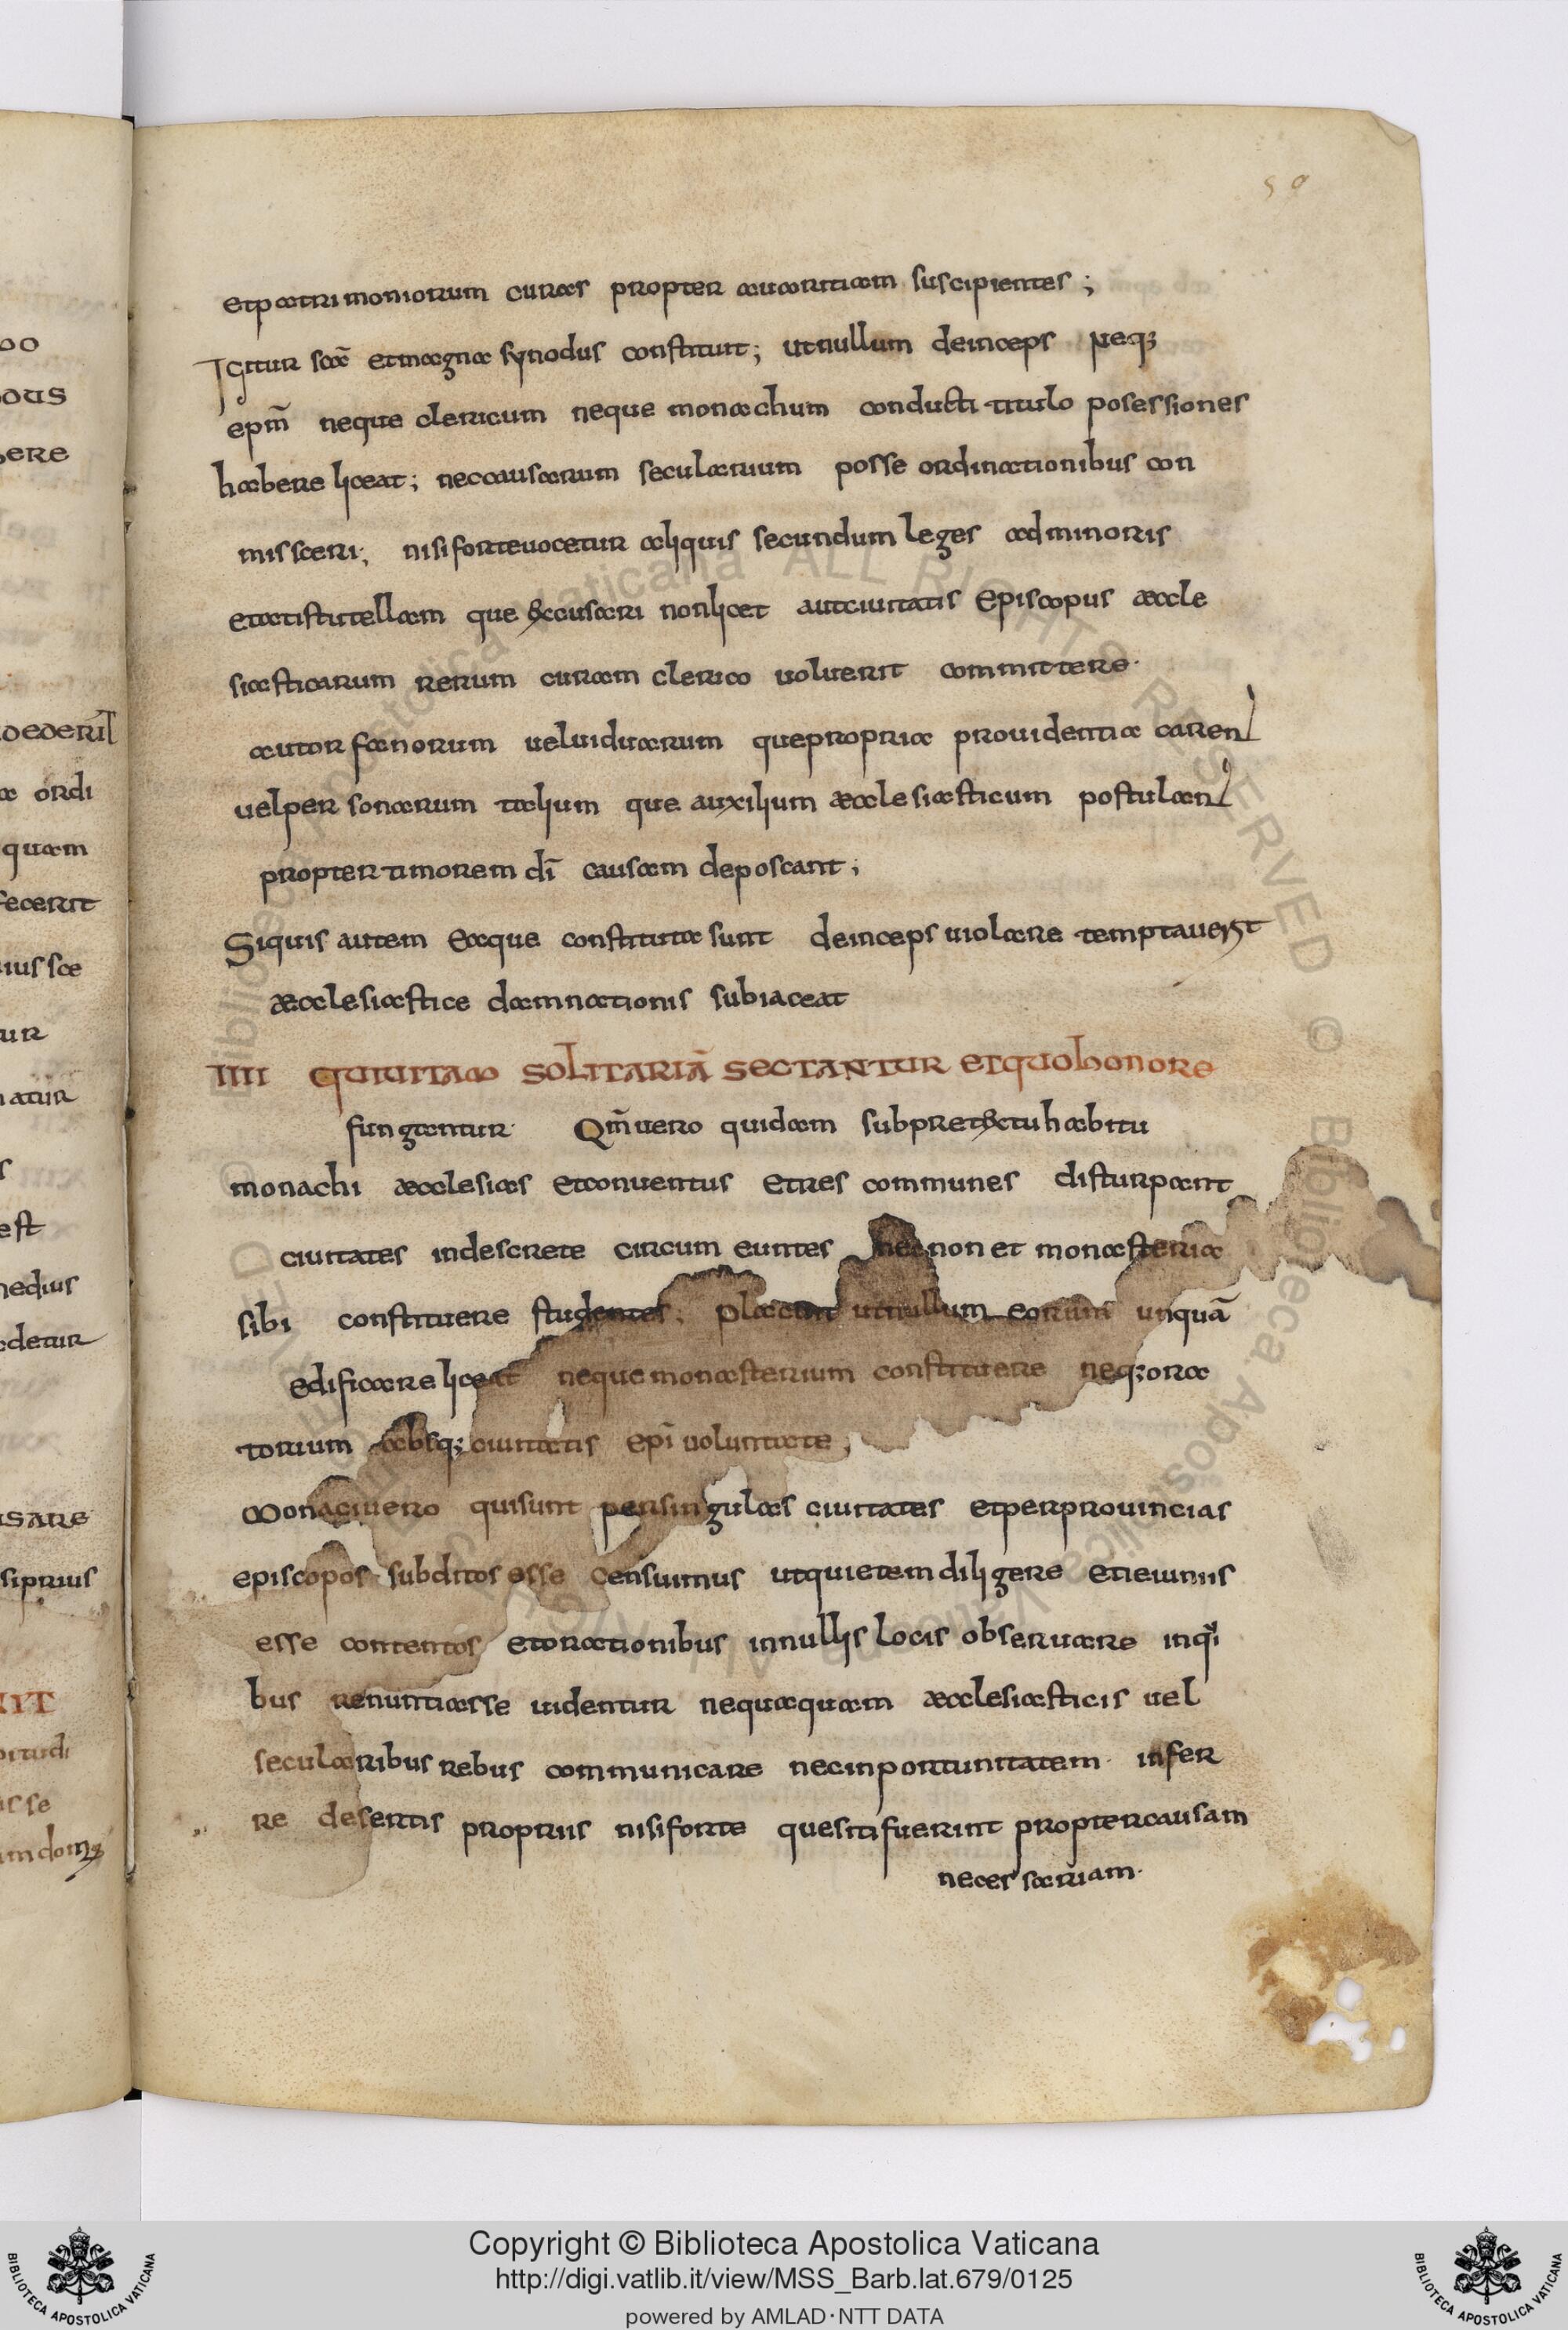 59
et patrimoniorum curas propter avaritiam suscipientes;
Igitur scā et magna synodus constituit; ut nullum deinceps neq;
epm̄ neque clericum neque monachum conducti titulo posessiones
habere liceat; nec causarum secularium posse ordinationibus con
missceri; nisi forte vocetur aliquis secundum leges ad minoris
etatis tutellam que excusari non licet aut civitatis episcopus æccle
siasticarum rerum curam clerico voluerit committere·
aut orfanorum vel viduarum que propria providentia caren̄t
vel personarum talium que auxilium æcclesiasticum postulan̄t
propter timorem dī causam deposcant;
Siquis autem ea que constituta sunt deinceps violare temptaverit
æcclesiastice damnationis subiaceat
IIII QUI VITAM SOLITARIĀ SECTANTUR ET QUO HONORE
fungantur· Qm̄ vero quidam sub pretextu habitu
monachi æcclesias et conventus et res communes disturpant
civitates indescrete circum euntes nec non et monasteria
sibi constituere studentes; placuit ut nullum eorum unquā
edificare liceat neque monasterium constituere neq; ora
torium absq; civitatis epī voluntate;
Monaci vero qui sunt per singulas civitates et per provincias
episcopos subditos esse censuimus ut quietem diligere et ieiuniis
esse contentos et orationibus in nullis locis observare in qi
bus renuntiasse videntur nequaquam æcclesiasticis vel
secularibus rebus communicare nec inportunitatem· infer
re desertis propriis nisi forte quesiti fuerint propter causam
necessariam·
Copyright © Biblioteca Apostolica Vaticana
http://digi.vatlib.it/view/MSS_Barb.lat.679/0125
powered by AMLAD·NTT DATA